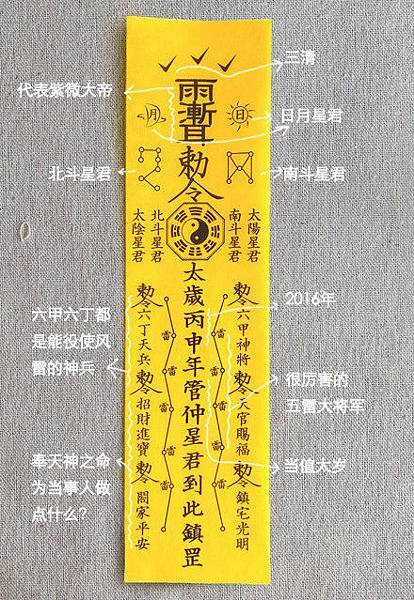 三清
代表紫微大帝
雨漸耳
月
日
日月星君
勅令
北斗星君
南斗星君
太陽星君
南斗星君
北斗星君
太陰星君
太歲丙申年管仲星君到此鎮罡
2016年
勅令六甲神將
勅令天官賜福
勅令鎮宅光明
勅令六丁天兵
勅令招財進寶
勅令閤家平安
雷
雷
雷
雷
雷
雷
雷
雷
雷
雷
六甲六丁都
是能役使风
雷的神兵
很厉害的
五雷大将军
当值大岁
奉天神之命
为当事人做
点什么?